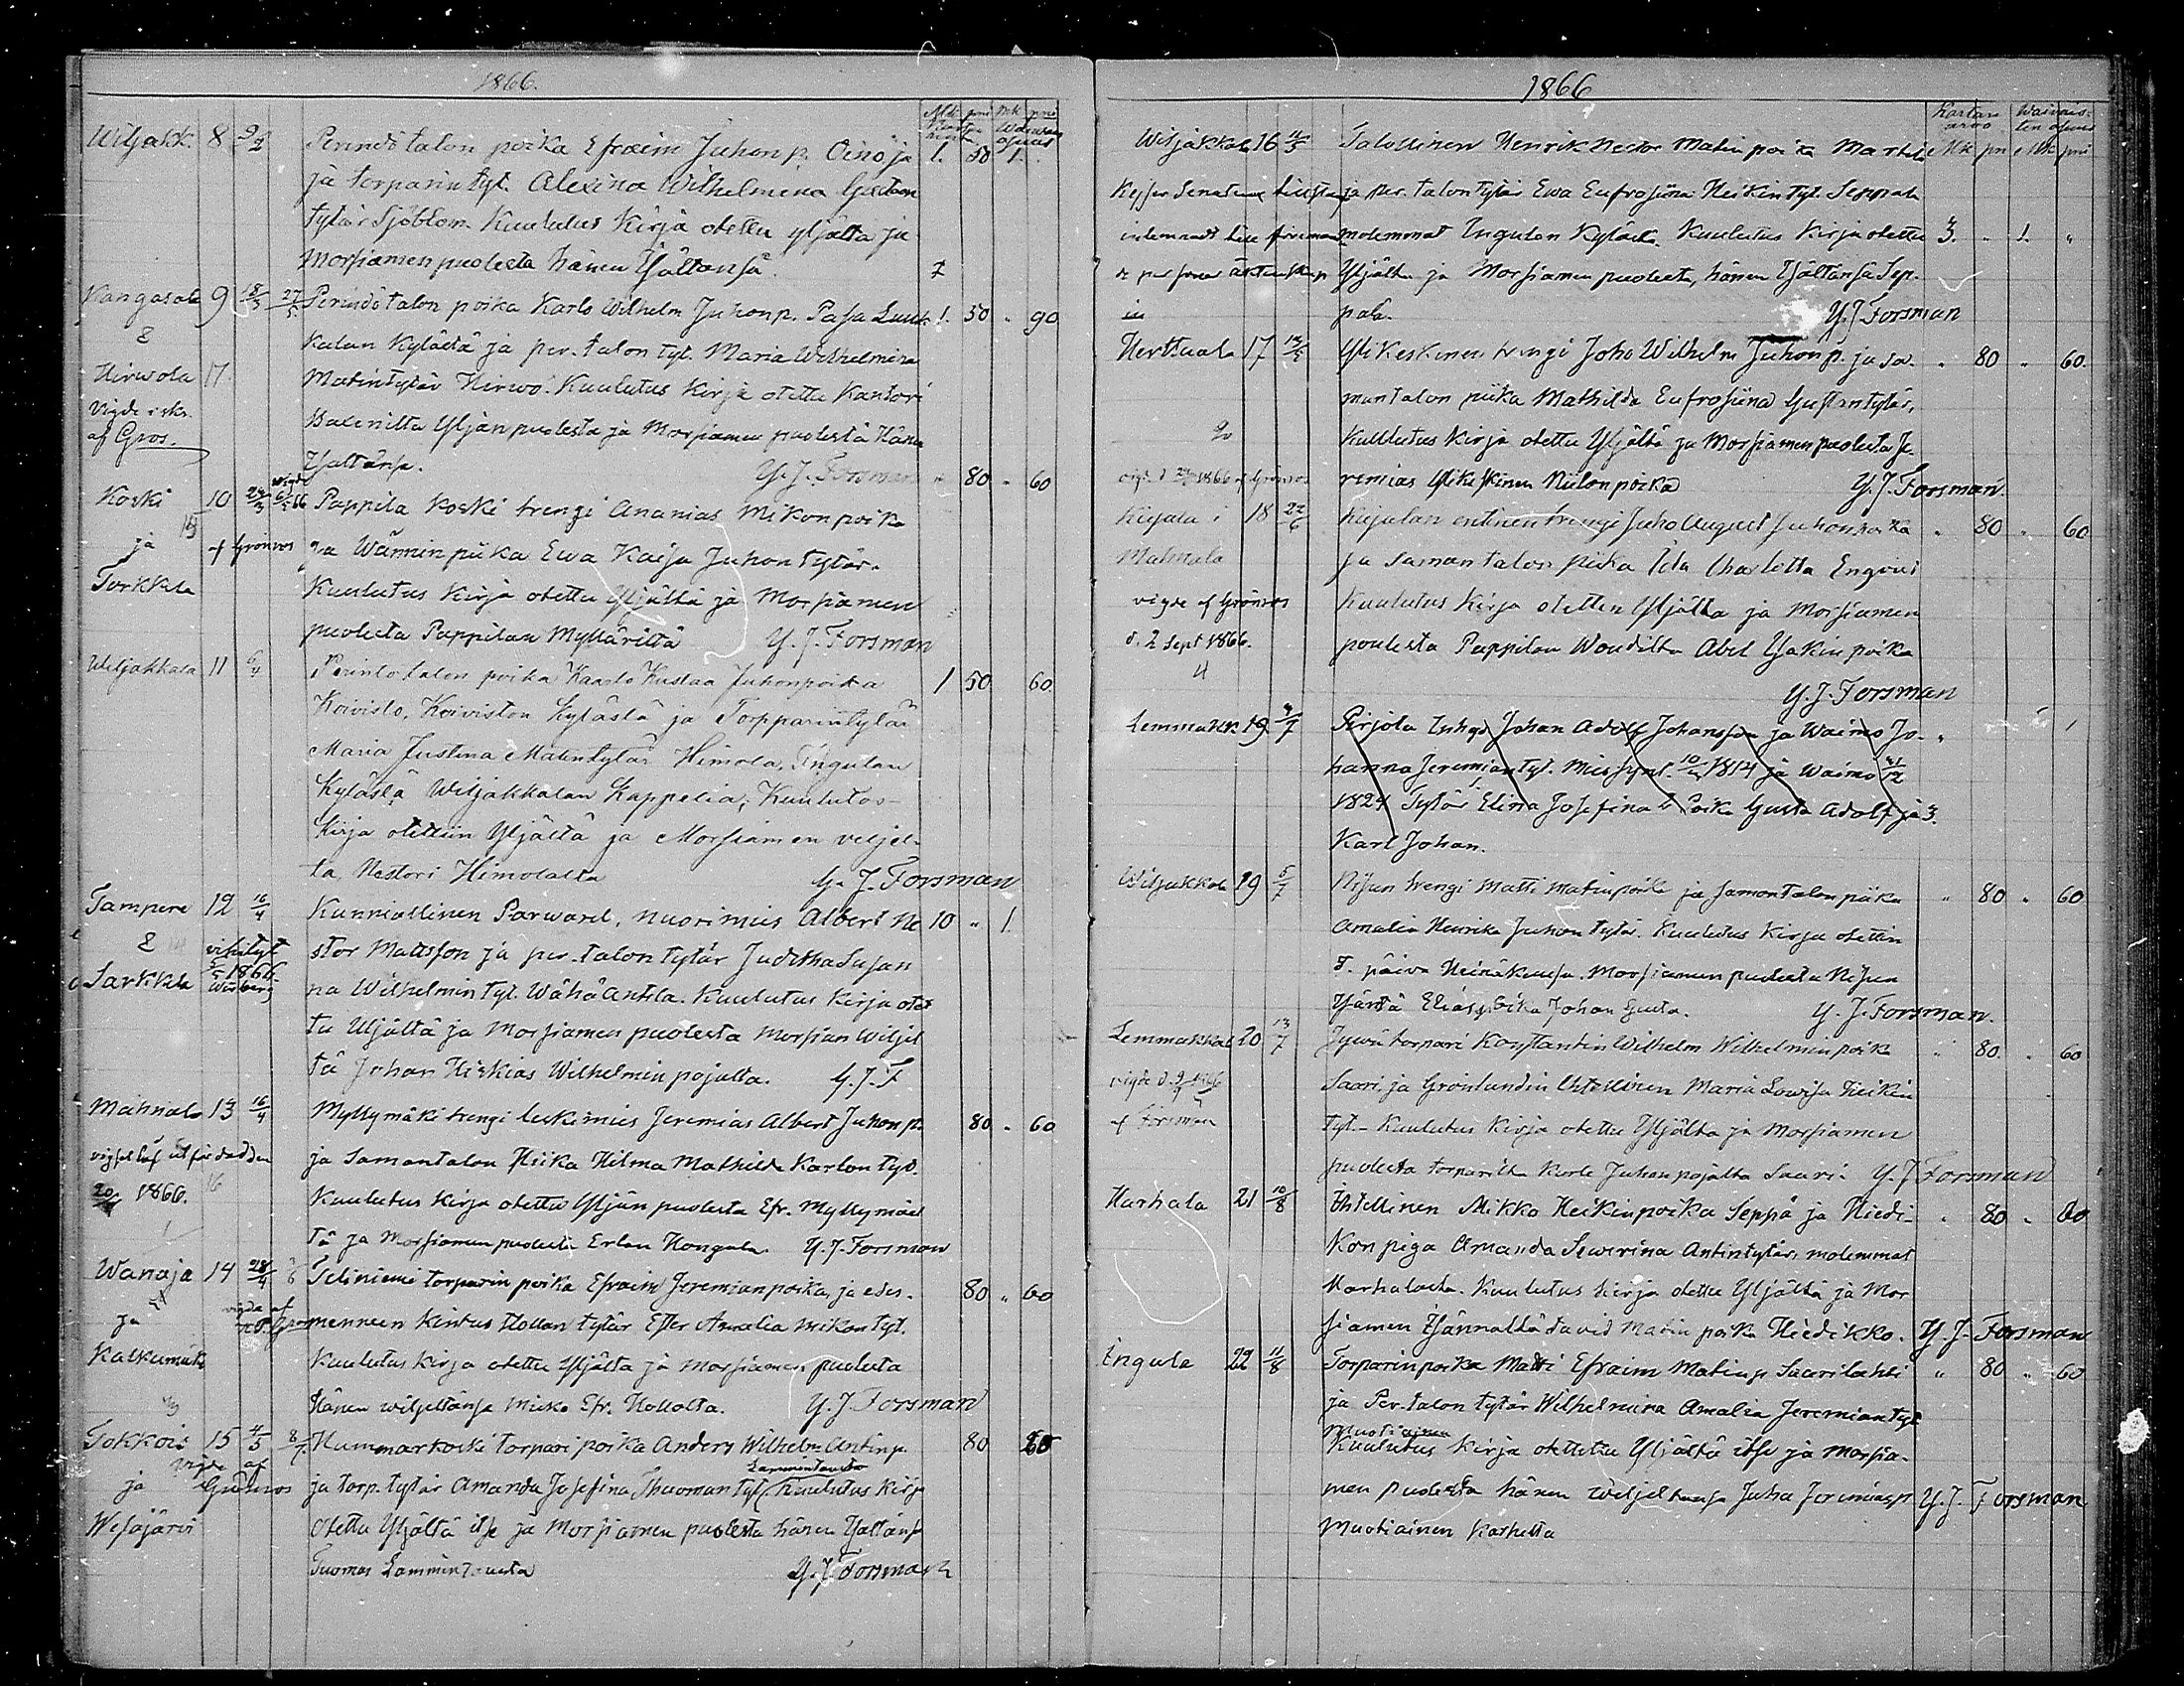 1866.
Mk pni Mk pni
Wiljakk. 8 9/2 Perindö talon poika Efraim Juhon p. Oinoja 1. 50 1.
ja torparin tyt. Alexina Wilhelmina Gustaan
tytär Sjöblom. Kuulutus Kirja otettu yljältä ja
Morsiamen puolesta hänen Isältänsä.
Kangasala 9 18/3 27/5 Perindö talon poika Karlo Wilhelm Juhon p. Pasa Luuk- 1. 50 " 90
&
kalan Kylästä ja per. talon tyt. Maria Wilhelmina
Hirwola 17
Matintytär Hirwo. Kuulutus Kirja otettu Kantori
Vigde i sks.
af Gros.
Yljän puolesta ja Morsiamen puolesta Hänen
Isältänsä. Y. J. Forsman " 80 " 60
Koski 10 24/3 vigde 6/5 66 Pappila Koski trengi Ananias Mikonpoika
ja af Grönroos ja Wännin piika Ewa Kaisa Juhon tytär.
Torkkala
Kuulutus Kirja otettu Yljältä ja Morsiamen
puolesta Pappilan Mylläriltä Y. J. Forsman
Wiljakkala 11 6/4 Perintö talon poika Kaarlo Kustaa Juhonpoika 1 50 60
Koivisto, Koiviston Kylästä ja Torpparintytär
Maria Justina Matintytär Himola, Ingulan
Kylästä Wiljakkalan Kappelia; Kuulutus-
Kirja otettiin Yljältä ja Morsiamen veljel-
tä, Nestori Himolalta Y. J. Forsman
Tampere 12 16/4 Kunniallinen Parward, nuorimies Albert Ne 10 " 1.
& vihityt
stor Mattsson ja per. talon tytär Juditha Susan
5/5 1866
Sarkkila
na Wilhelmin tyt. Wähä Antila. Kuulutus Kirja otet
tu Yljältä ja Morsiamen puolesta Morsian Wiljel
tä Johan Hiskias Wilhelmin pojalta. Y. J. F
Mahnala 13 16/4 Myllymäki trengi leskimies Jeremias Albert Juhon p. 80 " 60
vigsel bef utfärdad den
ja Samantalon Piika Hilma Mathilda Karlon tyt.
20/ 1866. 16
Kuulutus Kirja otettu Yljän puolesta Efr. Myllymäel
tä ja Morsiamen puolesta Erlan Hongala. Y. J. Forsman
Wanaja 14 28/4 Teliniemi torparin poika Efraim Jeremianpoika, ja edes- 80 " 60
ja vigda af
menneen Kintus Hollon tytär Ester Amalia Mikon tyt.
Kalkunmäki
Kuulutus Kirja otettu Yljältä ja Morsiamen puolesta
Hänen wiljeltänsä Misko Efr. Hollolta. Y. J. Forsman
Tokkois 15 4/5 8/7 Hummarkoski torpari poika Anders Wilhelm Antin p. 80 60
vigde af Lammintausta
ja Grönroos ja torp. tytär Amanda Josefina Thuoman tyt. Kuulutus Kirja
Wesajärvi
Otettu Yljältä itse ja Morsiamen puolesta hänen Isältänsä
Tuomas Lammintausta Y. J. Forsman
1866
Kartan arvo Waivais- ten apuus
Mk pn Mk pni
Wiljakkala 16 11/3 Talollinen Henrik Nestor Matin poika Martila
ja per. talon tytär Ewa Eufrosiina Heikin tyt. Seppälä
molemmat Ingulan Kylästä. Kuulutus Kirja otettu 3. " 1. "
Yljältä ja Morsiamen puolesta, hänen Isältänsä Sep-
pälä. Y. J. Forsman
Herttuala 17 13/5 Ylikeskinen trengi Joho Wilhelm Juhon p. ja sa- " 80 " 60.
mantalon piika Mathilda Eufrosiina Gustantytär,
Kuulutus Kirja otettu Yljältä ja Morsiamen puolesta Je-
remias Ylikeskinen Niilonpoika Y. J. Forsman.
Kiijala i 18 22/6 Kiijalan entinen trengi Juho August Juhonpoika " 80 " 60
Mahnala
ja samantalon piika Ida Charlotta Engvist
vigde af Grönroos
Kuulutus Kirja otettu Yljältä ja Morsiamen
d. 2 Sept 1866.
puolesta Pappilan Woudilta Abel Isakin poika
Y. J. Forsman
Lemmakk. 19 4/7 Pirjola Inhys Johan Adolf Johansson ja Waimo Jo-
hanna Jeremiantyt. Mies synt. 10/ 1814 ja Waimo 21/12
1824 Tytär Elina Josefina b. Poika Gusta Adolf ja 3.
Karl Johan.
Wiljakkala 19 5/7 Nisun trengi Matti Matinpoika ja Samantalon piika " 80 " 60
Amalia Henrika Juhon tytär. Kuulutus Kirja otettin
5. päiva Heinäkuusa. Morsiamen puolesta Nisun
Isäntä Elias poika Johan Gusta. Y. J. Forsman.
Lemmakkala 20 13/7 Jywä torpari Konstantin Wilhelm Wilhelmin poika " 80. " 60
Saari ja Grönlundin Itsellinen Maria Lowisa Heikin
af Forsman
tyt. Kuulutus Kirja otettu Yljältä ja Morsiamen
puolesta torparilta Karle Juhon pojalta Saari. Y. J. Forsman
Harhala 21 10/8 Ihtellinen Mikko Heikinpoika Seppä ja Hiedi- " 80 " 60
kon piga Amanda Sewerina Antintytär, molemmat
Harhalasta. Kuulutus Kirja otettu Yljältä ja Mor
siamen Isännältä David Matin poika Hiedikko. Y. J. Forsman
Ingula 22 11/8 Torparin poika Matti Efraim Matin p Saarilahti " 80 " 60
ja Per. talon tytär Wilhelmina Amalia Jeremiantyt
Muotiainen
Kuulutus Kirja otettu Yljältä itse ja Morsia-
men puolesta hänen weljeltänsä Juha Jeremiasp Y. J. Forsman
Muotiainen Karhetta